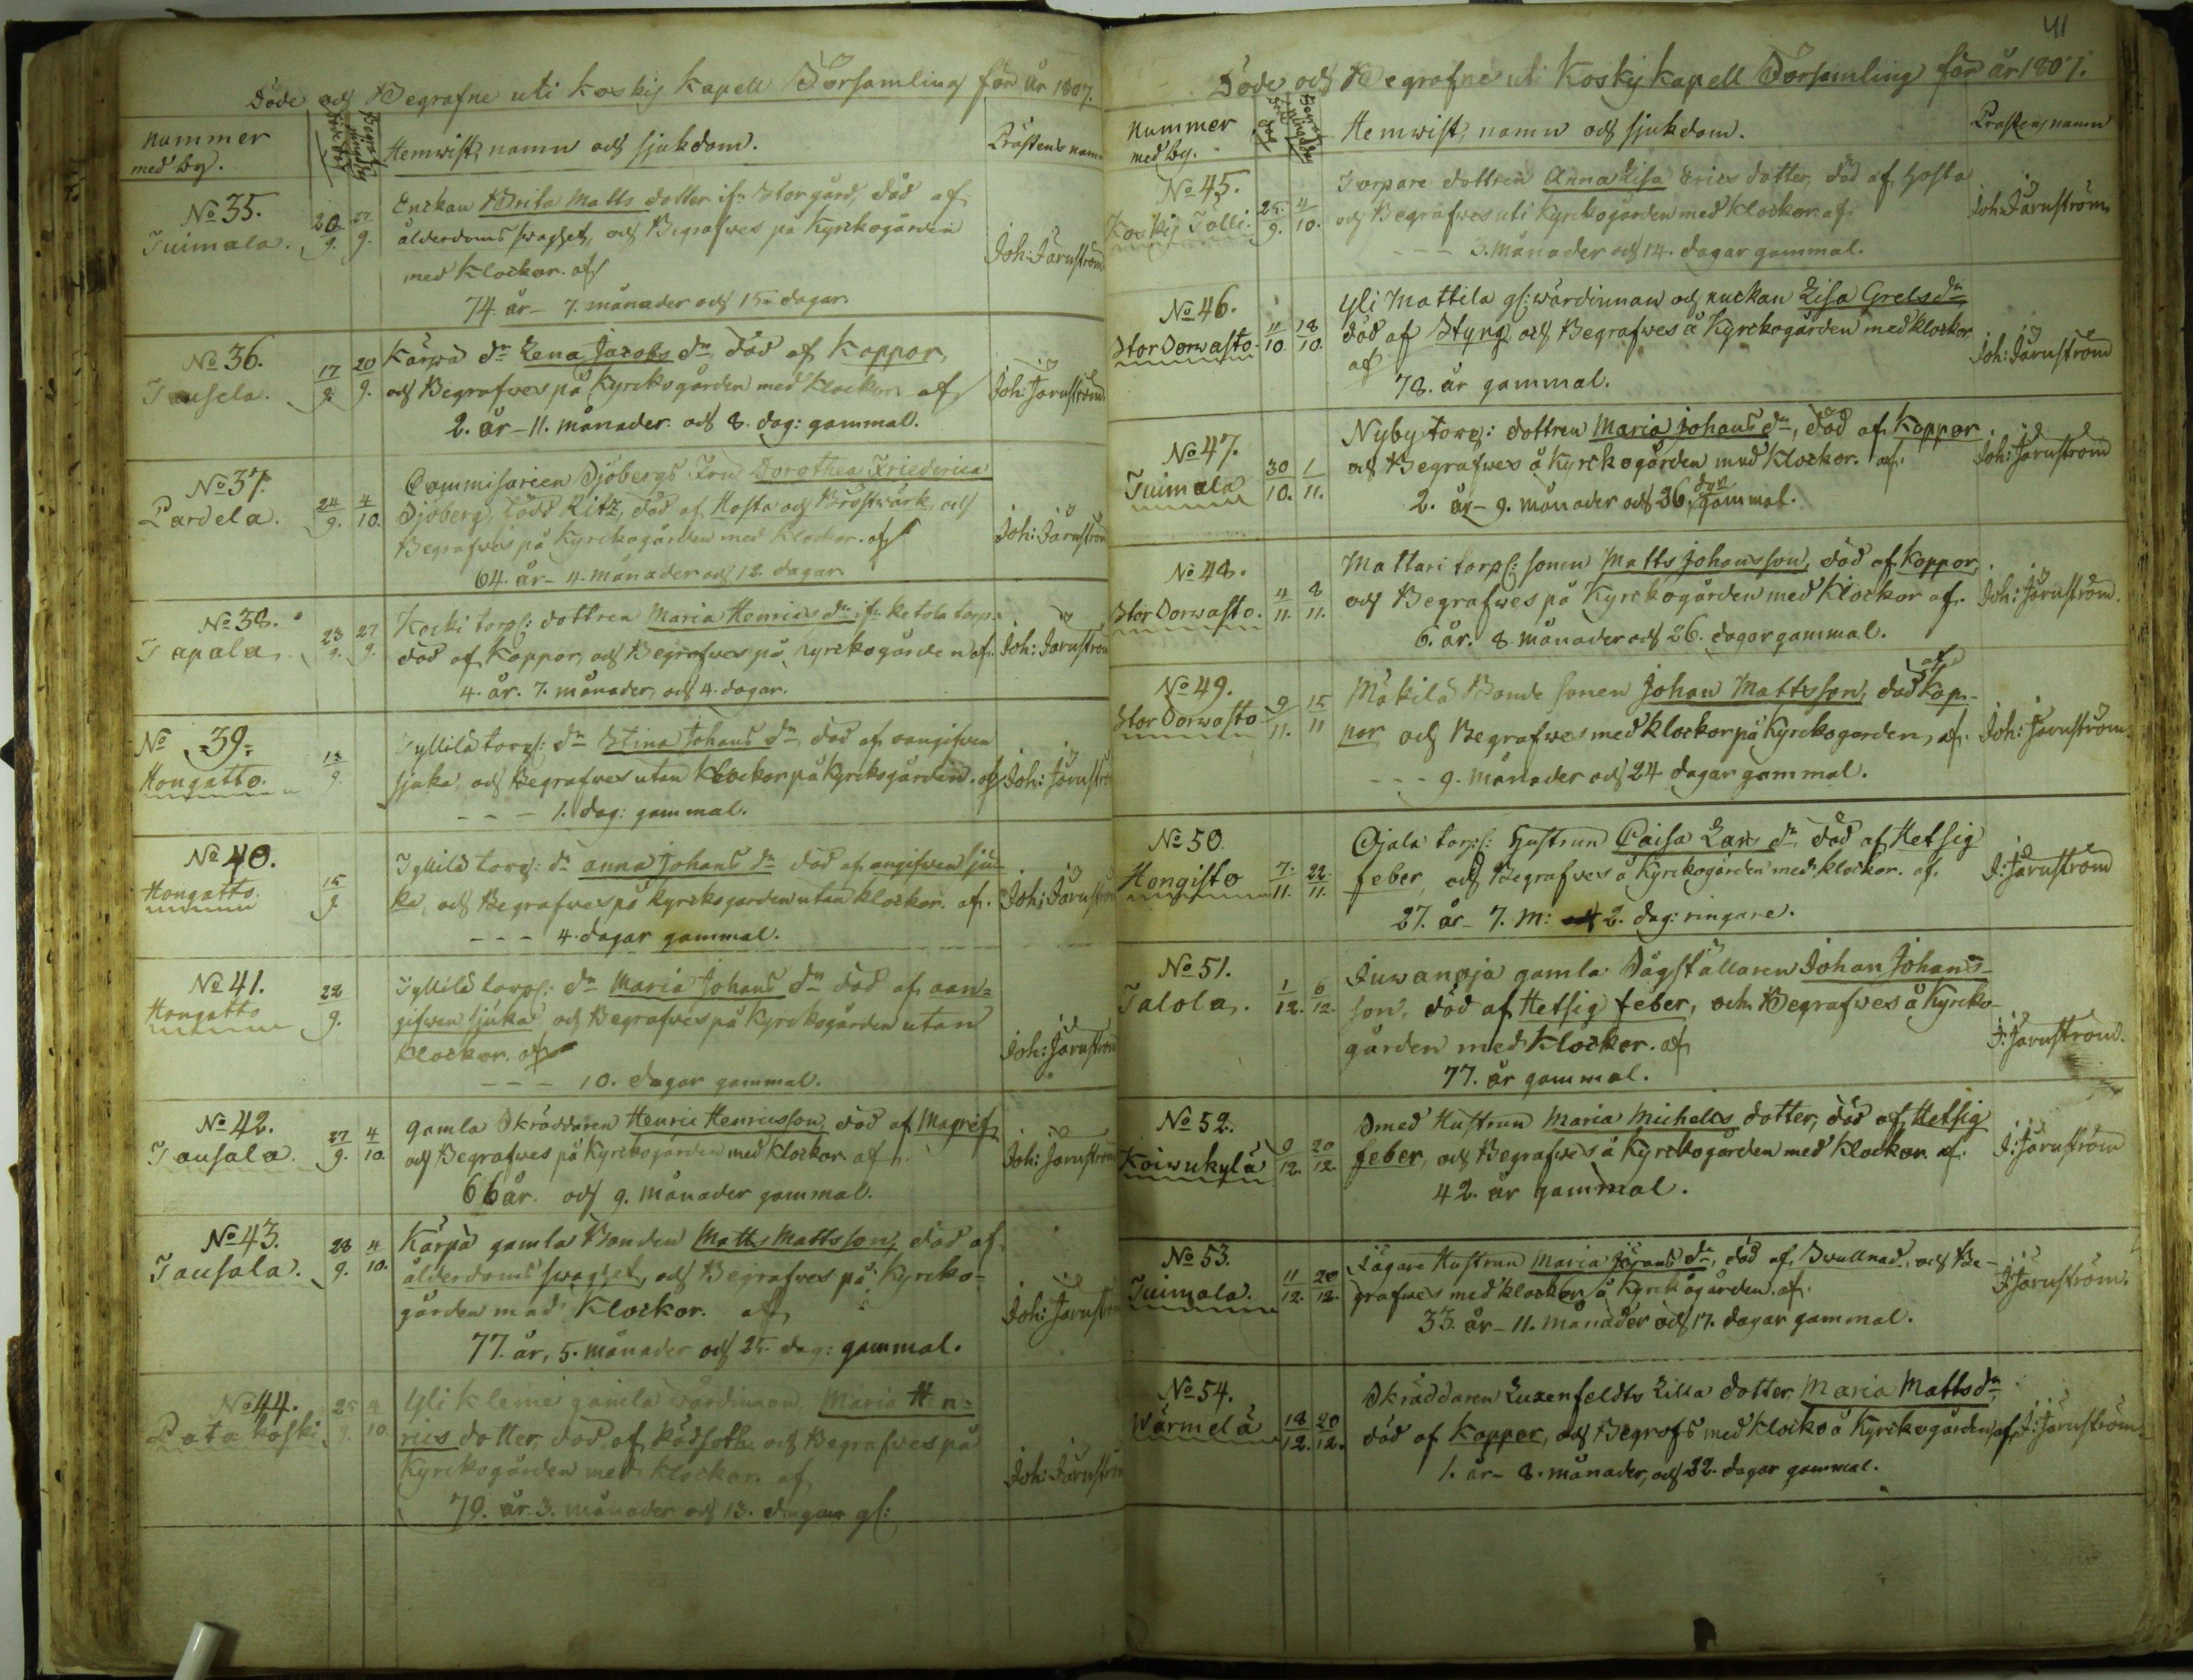 Döde och Begrafne uti Koskij Kapell Församling för år 1807.
nummer med by.
Hemwist, namn och sjukdom.
Prästens namn
No 35.
Tuimala.
20/9. 27/9.
Enckan Brita Matts dotter ifr: Storgård, död af
ålderdoms swaghet, och Begrafwes på Kyrckogården
med Klockor. af
74 år - 7. månader och 15 dagar.
Joh: Järnström
No 36.
Tausela.
17/9. 20/9.
Kärpä dr Lena Jacobs dr död af Koppor,
och Begrafwes på Kyrckogården med Klockor af
2. år - 11. månader och 8. dag: gammal.
Joh: Järnström
No 37.
Pardela.
24/9. 4/10.
Commisarien Sjöbergs Fru Dorothea Friederica
Sjöberg, född Ritz, död af Hosta och Bröstwärk, och
Begrafwes på Kyrckogården med Klockor. af
64. år - 4. månader och 12 dagar.
Joh: Järnström
No 38.
Tapala.
23/9. 27/9.
Kocki torp: dottren Maria Henrics dr ifr: Ketola torp:
död af Koppor, och Begrafwes på Kyrckogården af.
4. år. 7. månader, och 4. dagar.
Joh: Järnström
No 39.
Hongatto.
13/9.
Tyllilä torp: dr Stina Johans dr död af oangifwen
sjuka, och Begrafwes utan Klockor på Kyrckogården. af
- - - 1. dag: gammal.
Joh: Järnström
No 40.
Hongatto.
15/9
Tyllilä torp: dr anna Johans dr död af angifwen sju-
ka, och Begrafwes på kyrckogården utan klockor. af.
- - - 4. dagar gammal.
Joh: Järnström
No 41.
Hongatto
22/9.
Tyllilä torp: dr Maria Johans dr död af oan=
gifwen sjuka och Begrafwes på Kyrckogården utan
Klockor. af
- - - 10. dagar gammal.
Joh: Järnström
No 42.
Tausala.
27/9. 4/10.
gamla Skräddaren Henric Henricsson, död af Magref,
och Begrafwes på Kyrckogården med Klockor af
66 år. och 9. månader gammal.
Joh: Järnström
No 43.
Tausala.
28/9. 4/10.
Kärpä gamla Bonden Matts Mattsson, död af
ålderdoms swaghet, och Begrafwes på Kyrcko=
gården med Klockor. af
77. år, 5. månader och 25. dag: gammal.
Joh: Järnström
No 44.
Patakoski
25/9. 4/10.
Yli Klemi gamla wärdinnan Maria Hen=
rics dotter, död af och Begrafwes på
Kyrckogården med Klockor. af
79. år. 3. månader och 13. dagar gl:
Joh: Järnström
41
Döde och Begrafne uti Koskij Kapell Församling för år 1807.
nummer med by.
Hemwist, namn och sjukdom.
Prästens namn
No 45.
Koskij Tolli.
25/9. 4/10.
Torpare dottren Anna Lisa Erics dotter, död af Hosta
och Begrafwes uti Kyrckogården med Klockor. af.
- - - 3. månader och 14. dagar gammal.
Joh: Järnström
No 46.
Stor Sorwasto.
11/10. 18/10.
Yli Mattila gl: wärdinnan och enckan Lisa Grels dr
död af Styng och Begrafwes å Kyrckogården med klockor,
af
78. år gammal.
Joh: Järnström
No 47.
Tuimala
30/10. 1/11.
Nyby torp: dottren Maria Johans dr, död af Koppor
och Begrafwes å Kyrckogården med Klockor. af.
2. år - 9. månader och 26. dgr gammal.
Joh: Järnström
No 48.
Stor Sorwasto.
4/11. 8/11.
Mattari torp: sonen Matts Johansson, död af Koppor,
och Begrafwes på Kyrckogården med Klockor af.
6. år. 8. månader och 26. dagar gammal.
Joh: Järnström.
No 49.
Stor Sorwasto
9/11. 15/11
Mäkilä Bonde sonen Johan Mattsson, död af Kop-
por, och Begrafwes med klockor på Kyrckogården, af.
- - - 9. månader och 24 dagar gammal.
Joh: Järnström.
No 50.
Hongisto
7./11. 22./11.
Ojala torp: Hustrun Caisa Lars dr död af Hetsig
feber, och Begrafwes å Kyrckogården med klockor. af.
27. år - 7. m: 2. dag: ringare.
J: Järnström
No 51.
Talola.
1/12. 6/12.
Juwanoja gamla Sågställaren Johan Johans-
son, död af Hetsig feber, och Begrafwes å Kyrcko-
gården med Klockor. af
77. år gammal.
J: Järnström.
No 52.
Koiwukylä
9/12. 20/12.
Smed Hustrun Maria Michells dotter, död af Hetsig
feber, och Begrafwes å Kyrckogården med Klockor af.
42. år gammal.
J: Järnström
No 53.
Tuimala.
11/12. 20/12.
Jägare Hustrun Maria Jörans dr, död af Swullnad, och Be-
grafwes med klockor å Kyrckogården. af.
33. år - 11. månader och 17. dagar gammal.
J: Järnström.
No 54.
Wärmelä
18/12. 20/12.
Skräddaren Luxenfeldts Lilla dotter Maria Matts dr,
död af Koppor, och Begrofs med Klocko å Kyrckogården, af
1. år - 8. månader, och 22. dagar gammal.
J: Järnström.